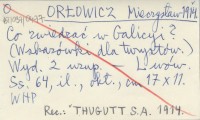 O. ORŁOWICZ Mieczysław
Co zwiedzać w Galicyi?
(Wskazówki dla turystów).
Wyd. 2 uzup. — Lwów.
Ss. 64, il., okł., cm 17 x 11.
WMP
Rec.: THUGUTT S.A. 1914.